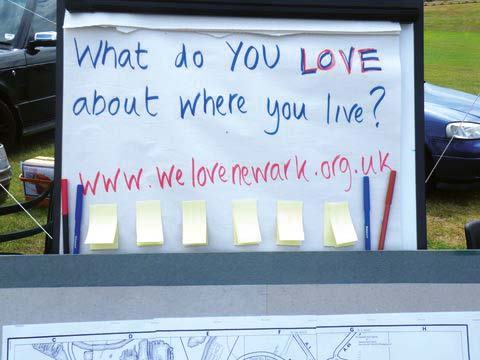 What do YOU LOVE
about where you live?
www.welovenewark.org.uk
C D E F G H